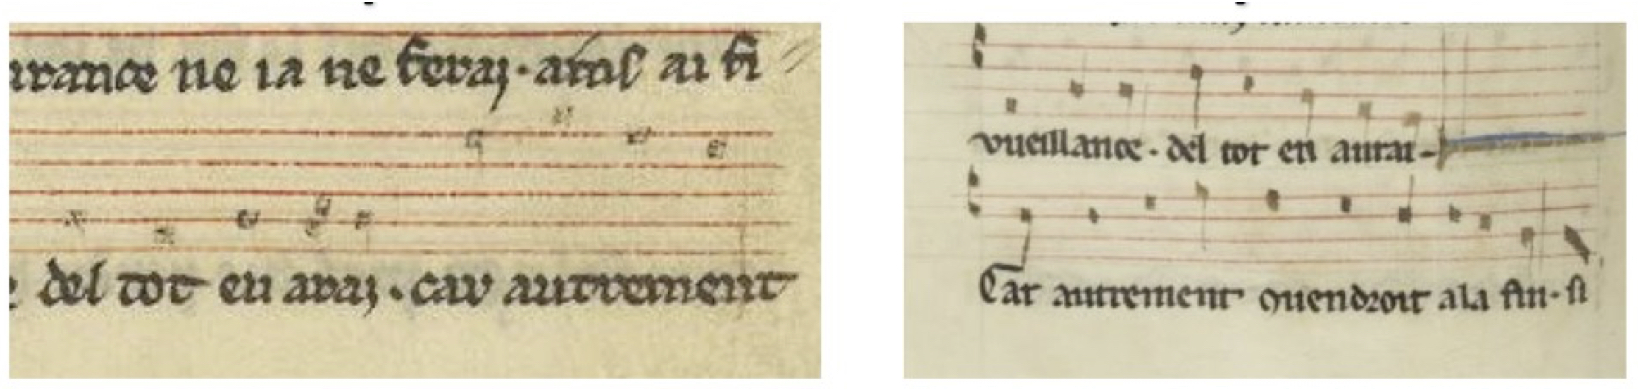 ne ia ne ferai · ains ai fi
del tot en arai · car autrement
vueillance · del tot en aurai -
Car autrement quendroit ala fin · si